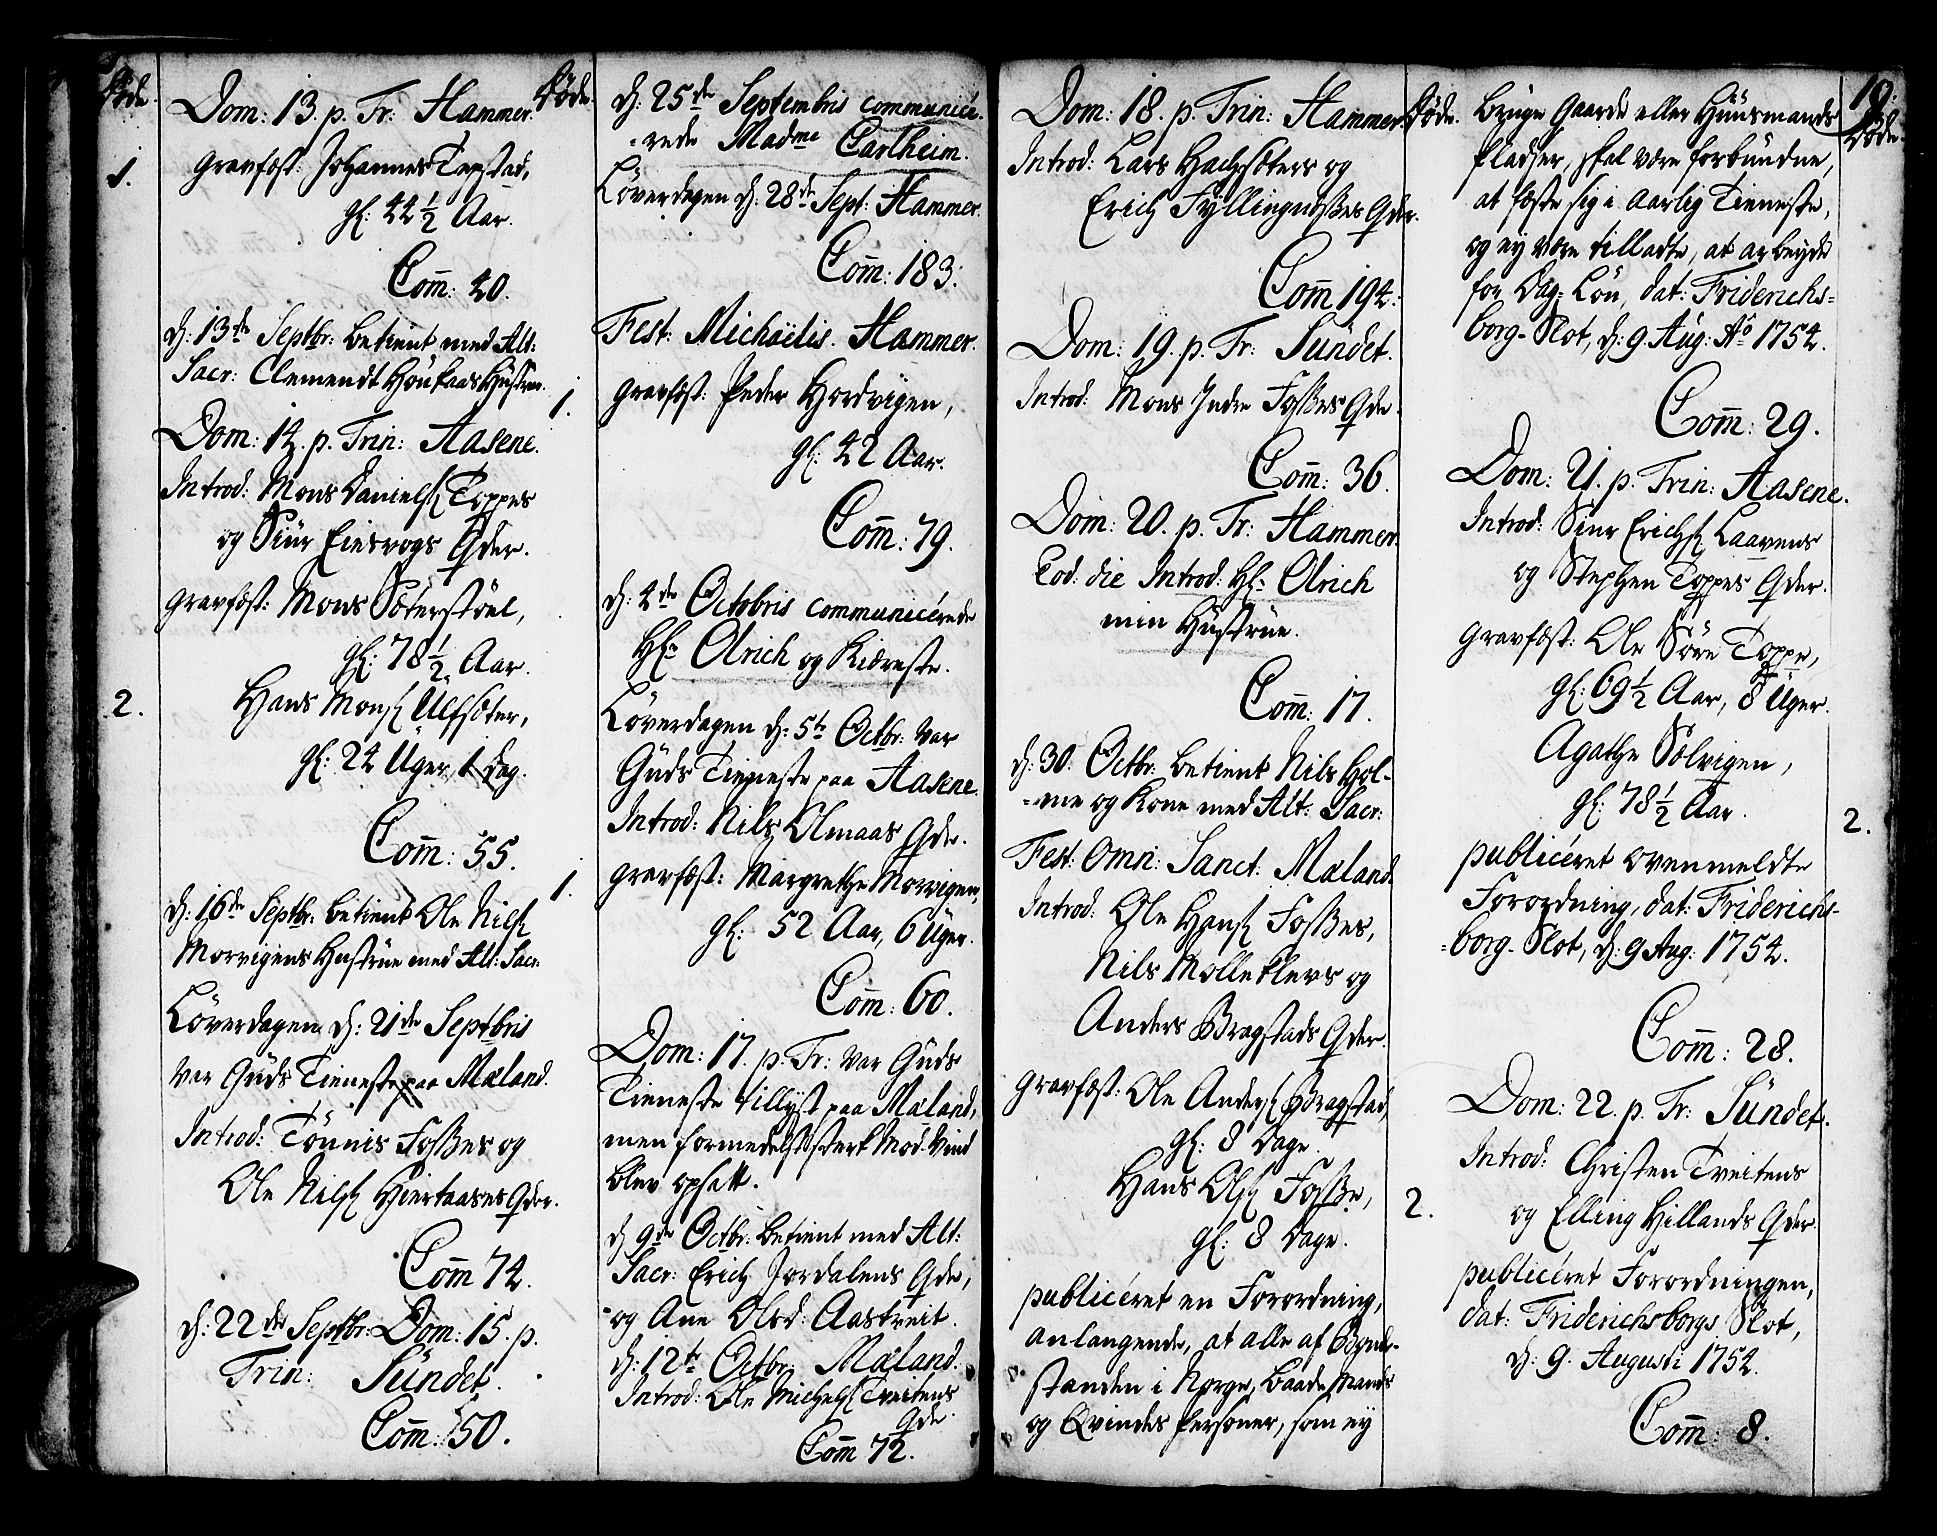 Døde.
Dom: 13. p. Tr: Hammer.
gravfæst: Johannes Tepstad,
1.
gl: 44 1/2 Aar.
Com̅: 40.
d: 13de Septbr: betient med Alt:
Sacr: Clemendt Houkaas Hustrue.
Dom: 14. p. Trin: Aasene.
Introd: Mons Danielss. Toppes
og Siur Eiesvogs Qder.
gravfæst: Mons Sæterstøel,
gl: 78 1/2 Aar.
Hans Monss. Ulfsæter,
2.
gl: 24 Uger, 1 Dag.
Com̅: 55.
d: 16de Septbr: betient Ole Nilss.
Morvigens Hustrue med Alt: Sacr:
Løverdagen d: 21de Septbris
var Guds Tieneste paa Mæland.
Introd: Tønnis Fosses og
Ole Nilss. Hiertaases Qder.
Com̅ 74.
d: 22de Septbr: Dom: 15. p.
Trin: Sundet.
Com̅: 150.
Døde.
d: 25de Septembris communicé-
-rede Madme Cartheim.
Løverdagen d: 28de Sept: Hammer.
Com̅: 183.
Fest: Michaëlis. Hammer.
1.
gravfæst: Peder Hordvigen,
gl: 42 Aar.
Com̅: 79.
d: 4de Octobris communicérede
Hr. Olrich og Kiæreste.
Løverdagen d: 5te Octbr: var
Guds Tieneste paa Aasene.
Introd: Nils Olmaas Qde.
1.
gravfæst: Margrethe Morvigen,
gl: 52 Aar, 6 Uger.
Com̅: 60.
Dom: 17. p. Tr: var Guds
Tieneste tillyst paa Mæland,
men formedelst sterk Mod-Vind
blev opsatt.
d 9de Octbr: betient med Alt:
Sacr: Erich Jordalens Qde,
og Ane Olsd: Aastveit.
d: 12te Octbr: Mæland.
Introd: Ole Michelss. Tveitens
Qde.
Com̅ 72.
Dom: 18. p. Trin: Hammer.
Introd: Lars Hachsæters og
Erich Fyllingnæsses Qder.
Com̅ 194.
Dom: 19. p. Tr: Sundet.
Introd: Mons Indre Fosses Qde.
Com̅: 36.
Dom: 20. p. Tr: Hammer.
Eod: die Introd: Hr. Olrich
min Hustrue.
Com̅: 17.
d: 30. Octbr: betient Nils Hol-
-me og Kone med Alt: Sacr:
Fest: Omn: Sanct: Mæland.
Introd: Ole Hanss. Fosses,
Nils Molleklevs og
Anders Bragstads Qder.
gravfæst: Ole Anderss. Bragstad,
gl: 8 Dage.
Hans Olss. Fosse,
2.
gl: 8 Dage.
publicéret en Forordning,
anlangende, at alle af Bonde-
standen i Norge, baade Mands
og Qvindes Personer, som ey
Døde.
10.
Døde.
bruge Gaarde eller Huusmands
Pladser, skal være forbundne,
at fæste sig i aarlig Tieneste,
og ey være tilladte, at arbeyde
for Dag-Løn, dat: Friderichs-
borg-Slot, d: 9 Aug: Ao 1754.
Com̅: 29.
Dom: 21. p. Trin: Aasene.
Introd: Siur Erichss. Laavens
og Stephen Toppes Qder.
gravfæst: Ole Søre Toppe,
gl: 69 1/2 Aar, 8 Uger.
Agathe Sølvigen,
gl: 78 1/2 Aar.
2.
publicéret ovenmeldte
Forordning, dat: Friderichs-
-borg-Slot, d: 9 Aug: 1754.
Com̅: 28.
Dom: 22. p. Tr: Sundet.
Introd: Christen Tveitens
og Elling Hillands Qder.
publicéret Forordningen,
dat: Friderichsborgs Slot,
d: 9. Augusti 1754.
Com̅: 8.